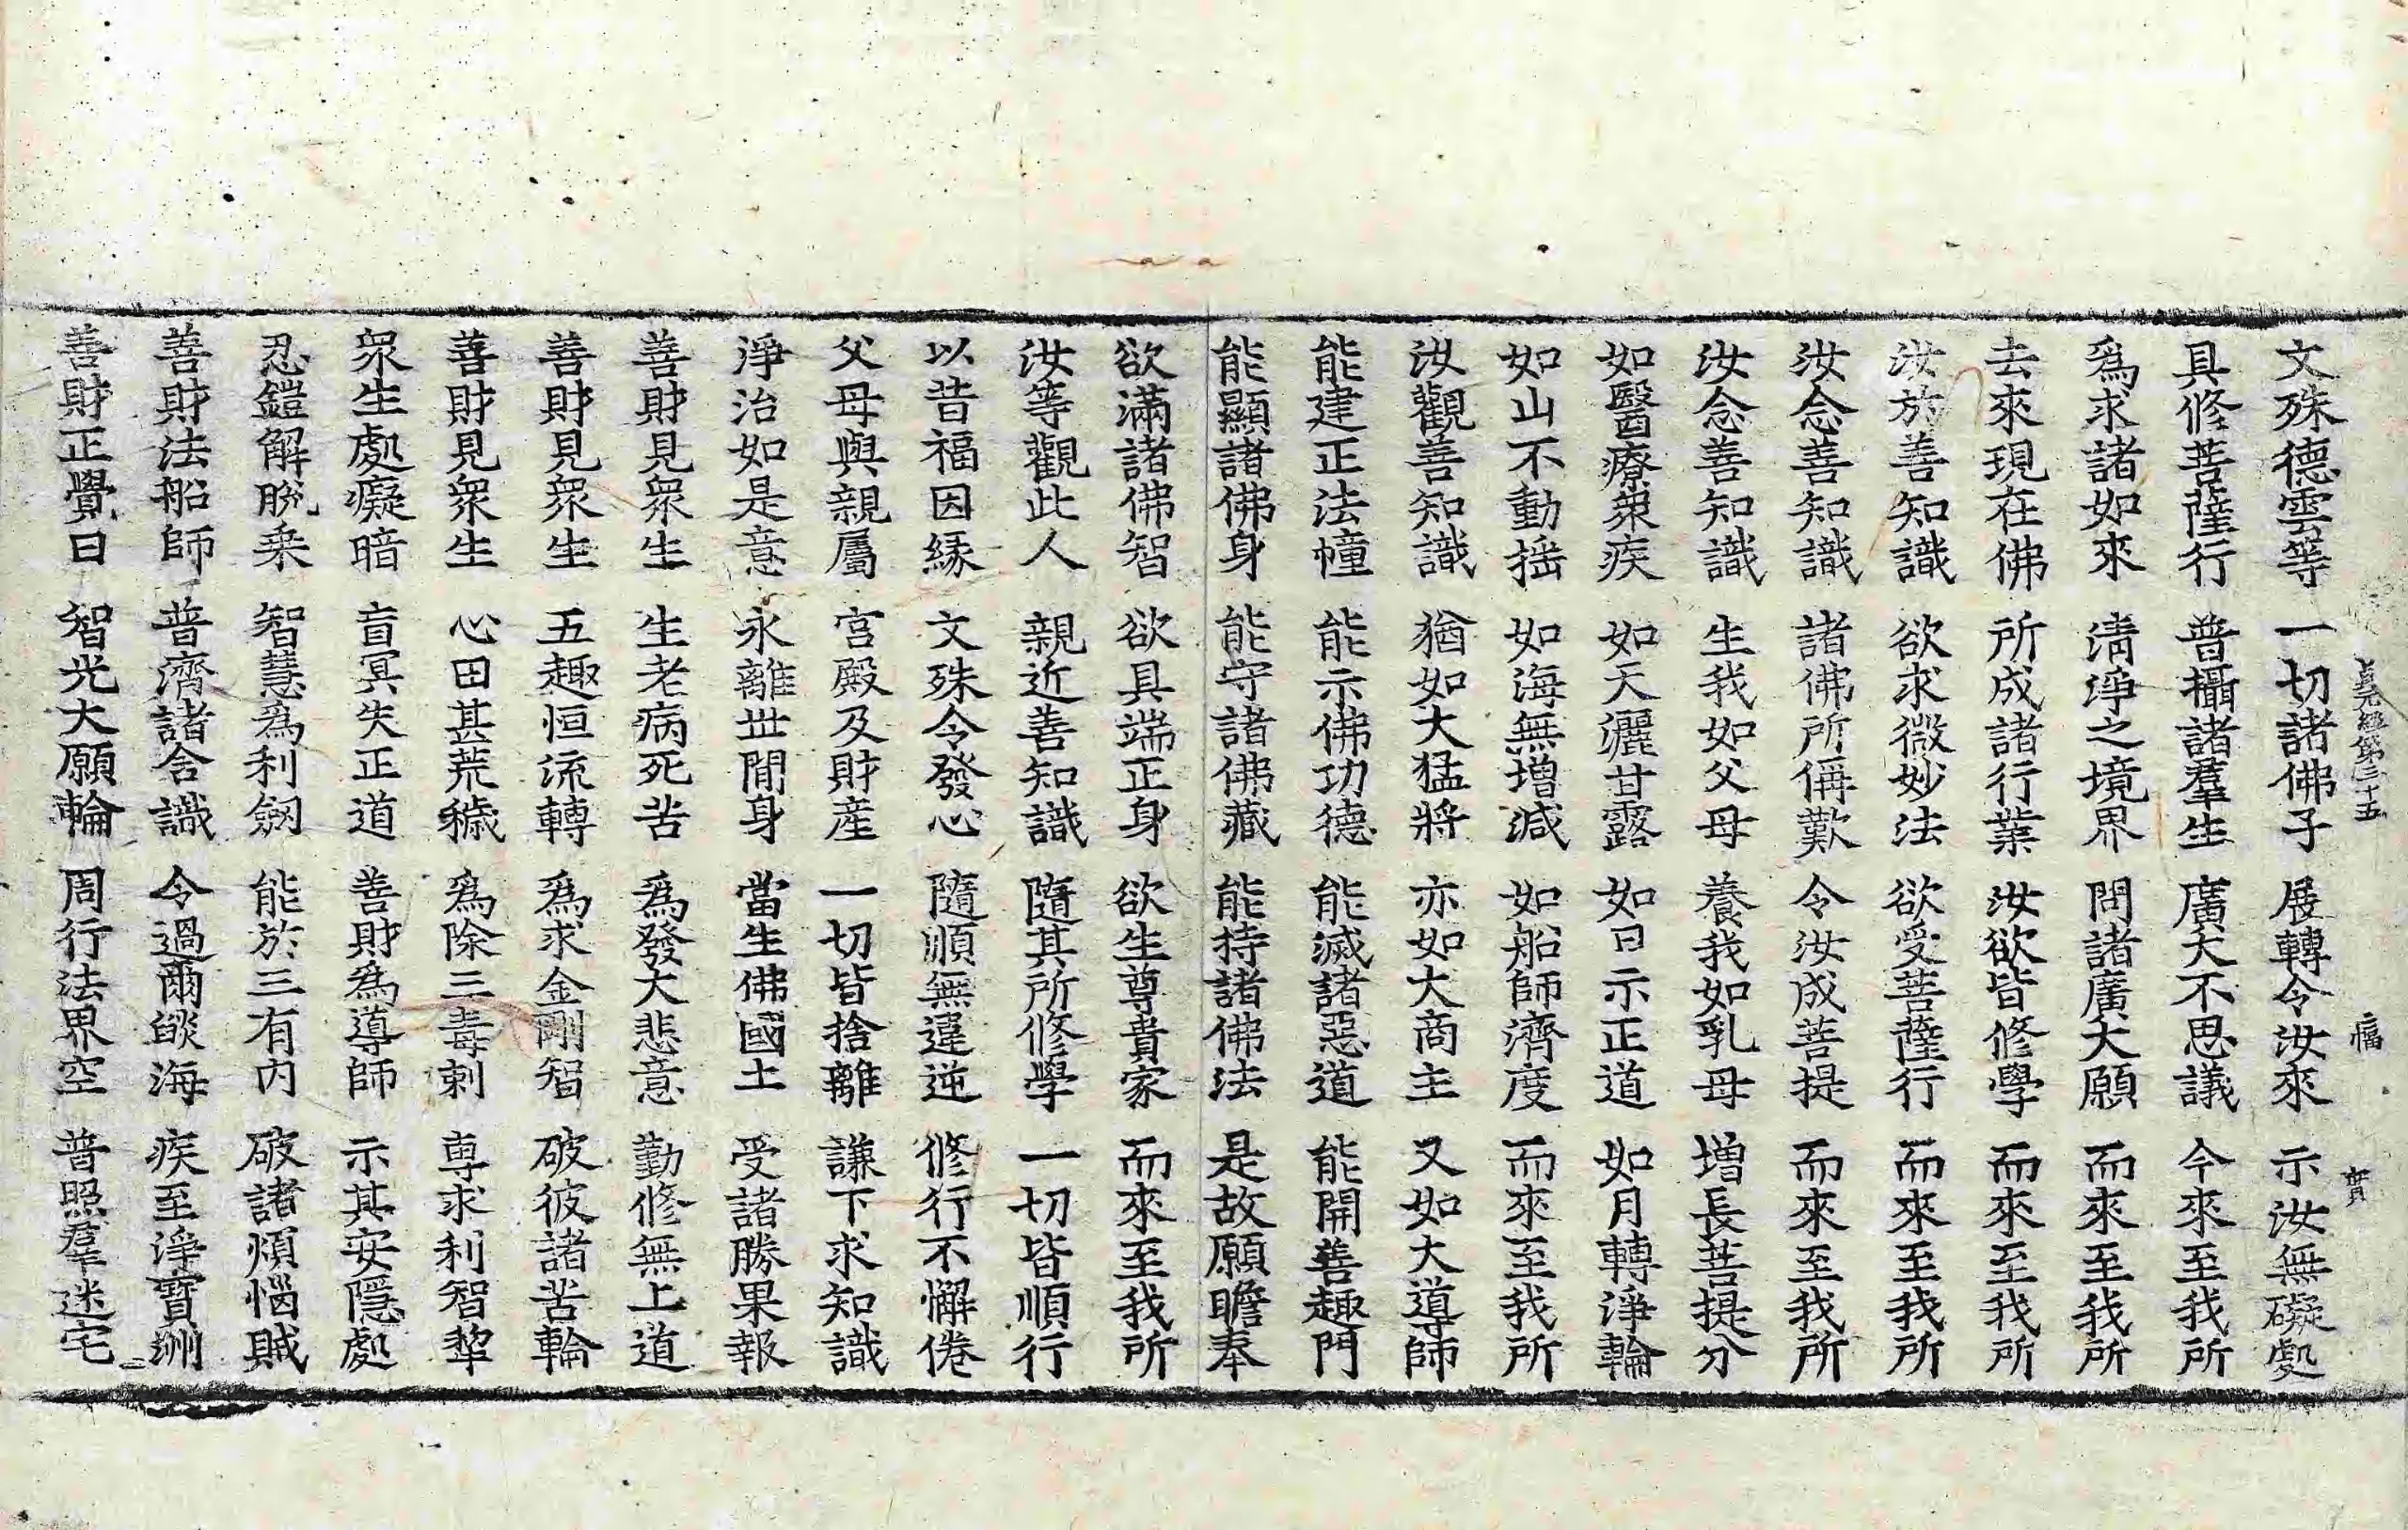 貞元經第三十五 福 實
文殊德雲等 一切諸佛子 展轉令汝來 示汝無礙處
具修菩薩行 普攝諸羣生 廣大不思議 今來至我所
爲求諸如來 淸淨之境界 問諸廣大願 而來至我所
去來現在佛 所成諸行業 汝欲皆修學 而來至我所
汝於善知識 欲求微妙法 欲受菩薩行 而來至我所
汝念善知識 諸佛所偁歎 令汝成菩提 而來至我所
汝念善知識 生我如父母 養我如乳母 增長菩提分
如醫療衆疾 如天灑甘露 如日示正道 如月轉淨輪
如山不動揺 如海無增減 如船師濟度 而來至我所
汝觀善知識 猶如大猛將 亦如大商主 又如大導師
能建正法幢 能示佛功德 能滅諸惡道 能開善趣門
能顯諸佛身 能守諸佛藏 能持諸佛法 是故願瞻奉
欲滿諸佛智 欲具端正身 欲生尊貴家 而來至我所
汝等觀此人 親近善知識 隨其所修學 一切皆順行
以昔福因緣 文殊令發心 隨順無違逆 修行不懈倦
父母與親屬 宮殿及財産 一切皆捨離 謙下求知識
淨治如是意 永離世間身 當生佛國土 受諸勝果報
善財見衆生 生老病死苦 爲發大悲意 勤修無上道
善財見衆生 五趣恒流轉 爲求金剛智 破彼諸苦輪
善財見衆生 心田甚荒穢 爲除三毒刺 專求利智犂
衆生處癡暗 盲冥失正道 善財爲導師 示其安隱處
忍鎧解脫乘 智慧爲利劒 能於三有內 破諸煩惱賊
善財法船師 普濟諸含識 令過爾燄海 疾至淨寶洲
善財正覺日 智光大願輪 周行法界空 普照羣迷宅
二